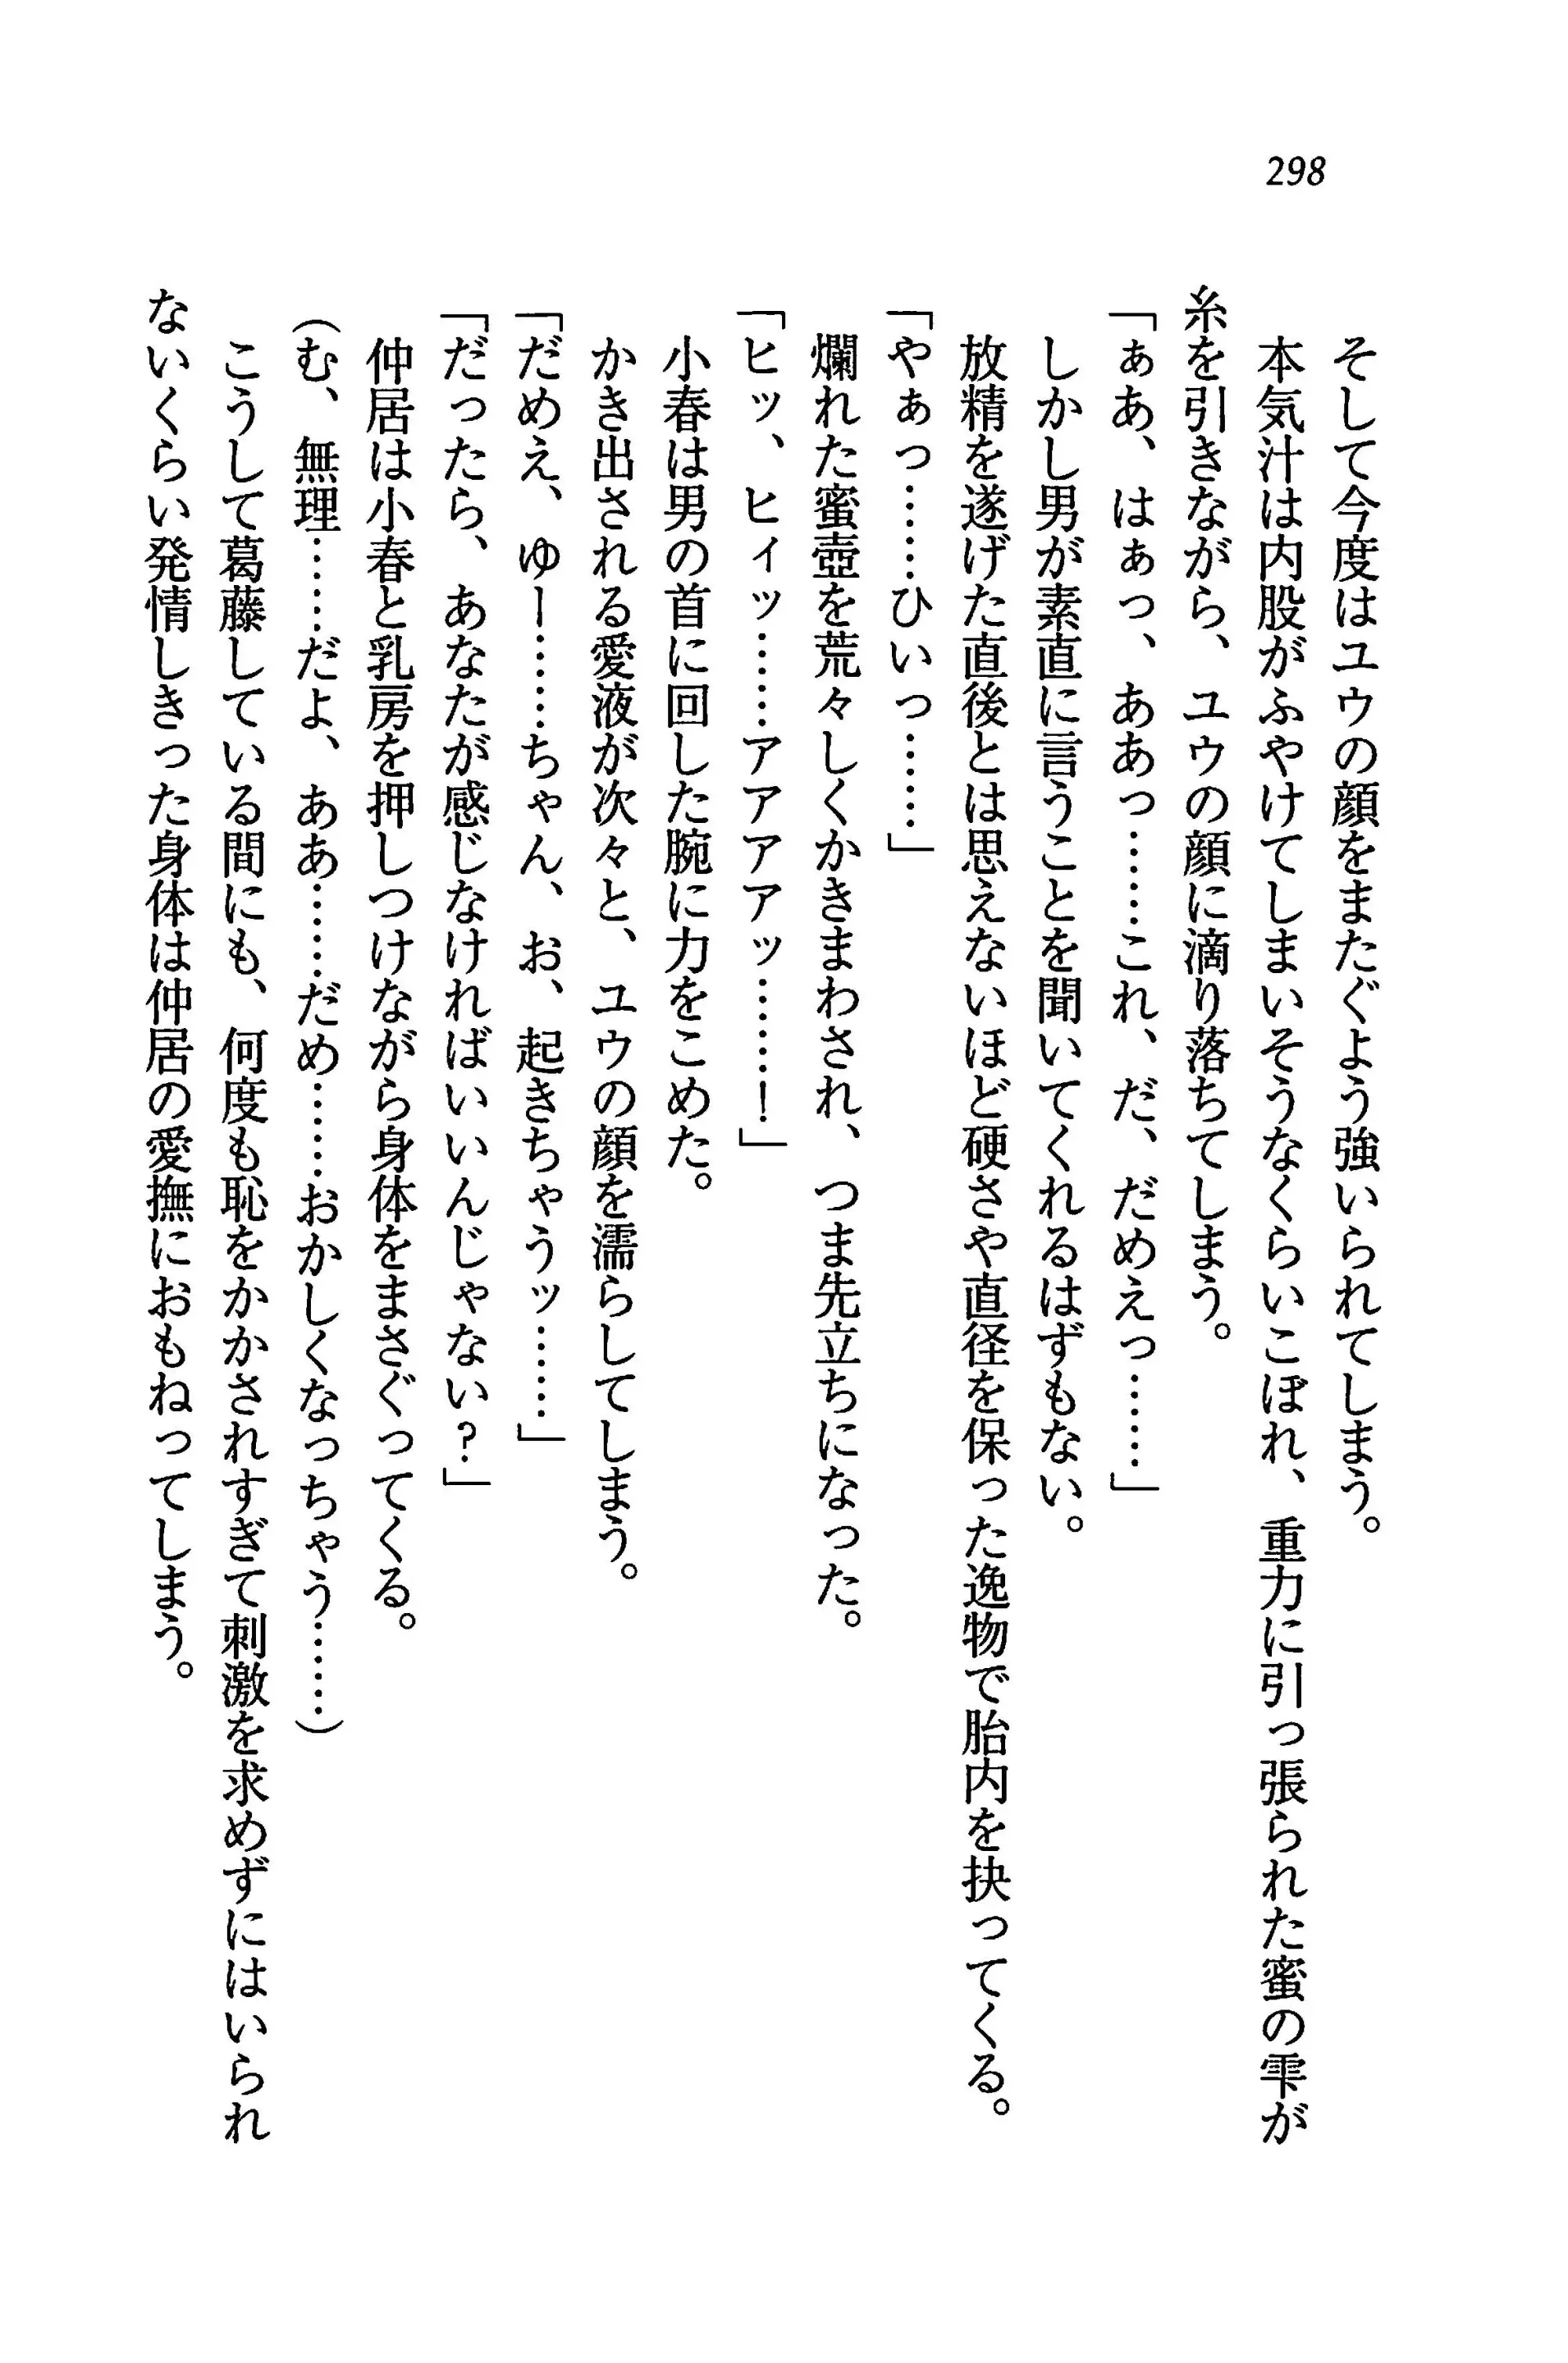 298
そして今度はユウの顔をまたぐよう強いられてしまう。
本気汁は内股がふやけてしまいそうなくらいこぼれ、重力に引っ張られた蜜の雫が
糸を引きながら、ユウの顔に滴り落ちてしまう。
「ぁあ、はぁっ、ああっ……これ、だ、だめえっ……」
しかし男が素直に言うことを聞いてくれるはずもない。
放精を遂げた直後とは思えないほど硬さや直径を保った逸物で胎内を抉ってくる。
「やぁっ……ひいっ……」
爛れた蜜壺を荒々しくかきまわされ、つま先立ちになった。
「ヒッ、ヒィッ……アアアアッ……！」
小春は男の首に回した腕に力をこめた。
かき出される愛液が次々と、ユウの顔を濡らしてしまう。
「だめえ、ゆー……ちゃん、お、起きちゃうッ……」
「だったら、あなたが感じなければいいんじゃない？」
仲居は小春と乳房を押しつけながら身体をまさぐってくる。
（む、無理……だよ、ああ……だめ……おかしくなっちゃう……）
こうして葛藤している間にも、何度も恥をかかされすぎて刺激を求めずにはいられ
ないくらい発情しきった身体は仲居の愛撫におもねってしまう。